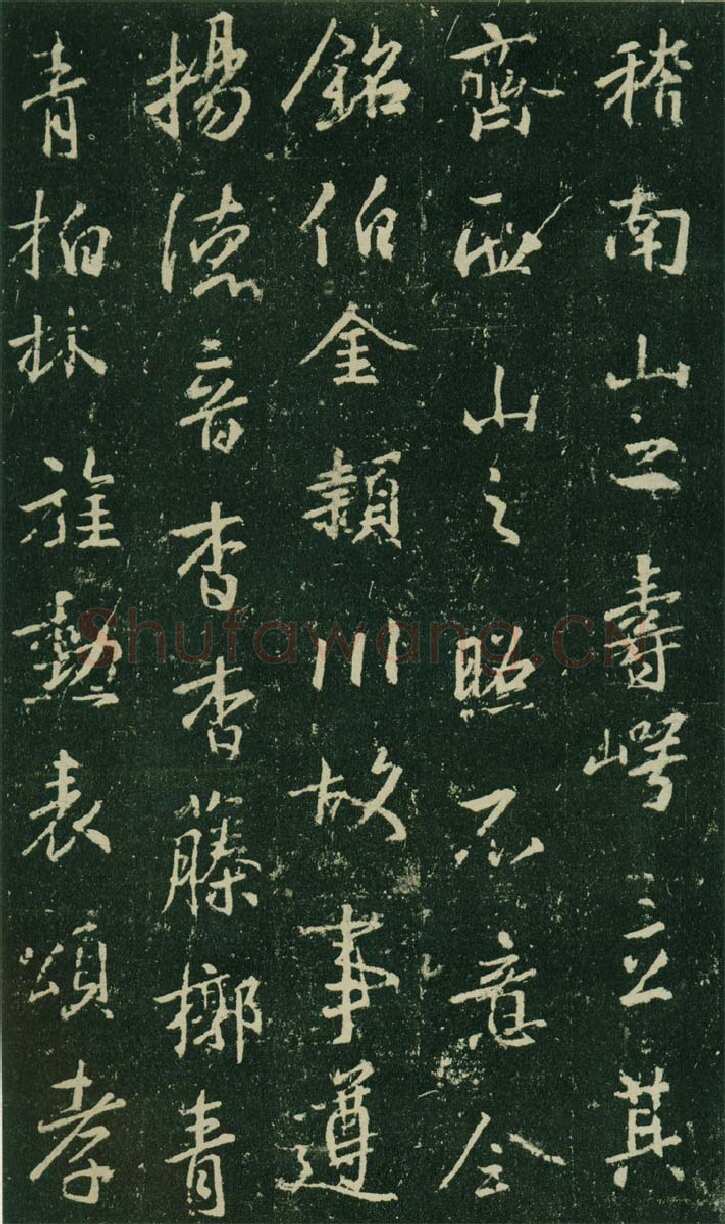 稽南山之壽崿立其
齊西山之照不意今
銘伯金頴川故事遵
揚德音杳杳藤槨青
青柏林旌勲表頌孝
Shufawang.CN